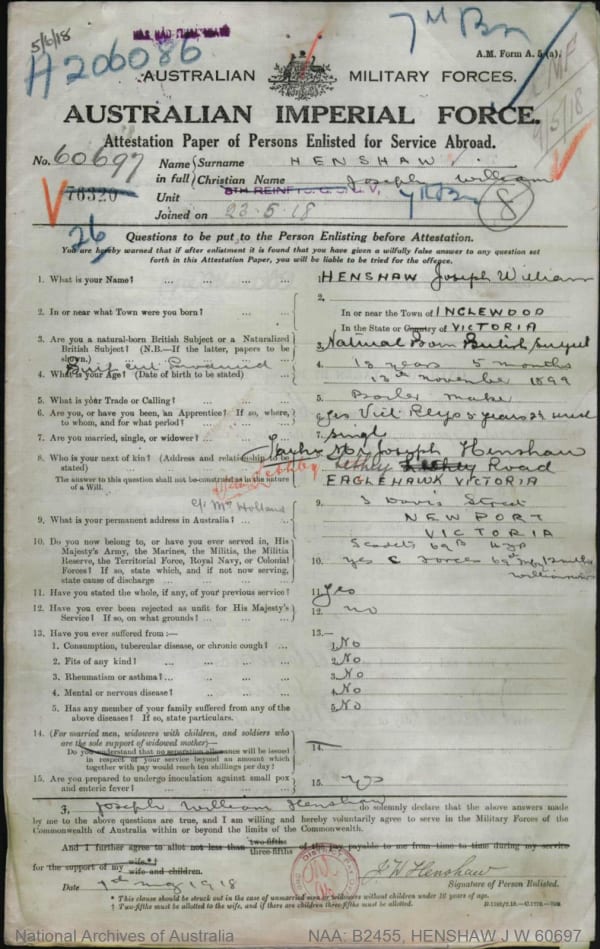 5/6/18
7th Bn
A206086
A.M. Form A. 5 (a).
AUSTRALIAN MILITARY FORCES.
AUSTRALIAN IMPERIAL FORCE.
Attestation Paper of Persons Enlisted for Service Abroad.
9/5/18
No. 60697
Name in full
Surname HENSHAW
Christian Name Joseph William
76320
Unit 8TH REINF
Joined on 23.5.18
8
26
Questions to be put to the Person Enlisting before Attestation.
You are hereby warned that if after enlistment it is found that you have given a wilfully false answer to any question set
forth in this Attestation Paper, you will be liable to be tried for the offence.
1. What is your Name? 1. HENSHAW Joseph William
2. In or near what Town were you born? 2. In or near the Town of INGLEWOOD
In the State or Country of VICTORIA
3. Are you a natural-born British Subject or a Naturalized
British Subject? (N.B.—If the latter, papers to be
shown.) 3. Natural Born British Subject
4. What is your Age? (Date of birth to be stated) 4. 18 years 5 months
13th November 1899
5. What is your Trade or Calling? 5. Boiler Maker
6. Are you, or have you been, an Apprentice? If so, where,
to whom, and for what period? 6. Yes Vict Rlys 2 years
7. Are you married, single, or widower? 7. Single
8. Who is your next of kin? (Address and relationship to be
stated) 8. Father Mr Joseph Henshaw
Road
EAGLEHAWK VICTORIA
The answer to this question shall not be construed as in the nature
of a Will.
c/o Mrs Holland
9. What is your permanent address in Australia? 9. Davis Street
NEWPORT
VICTORIA
10. Do you now belong to, or have you ever served in, His
Majesty's Army, the Marines, the Militia, the Militia
Reserve, the Territorial Force, Royal Navy, or Colonial
Forces? If so, state which, and if not now serving,
state cause of discharge
10. Yes C Forces 69th
11. Have you stated the whole, if any, of your previous service? 11. Yes
12. Have you ever been rejected as unfit for His Majesty's
Service? If so, on what grounds? 12. no
13. Have you ever suffered from:— 13.—
1. Consumption, tubercular disease, or chronic cough? 1. No
2. Fits of any kind? 2. No
3. Rheumatism or asthma? 3. No
4. Mental or nervous disease? 4. No
5. Has any member of your family suffered from any of the
above diseases? If so, state particulars. 5. No
14. (For married men, widowers with children, and soldiers who
are the sole support of widowed mother)—
Do you understand that no separation allowance will be issued
in respect of your service beyond an amount which
together with pay would reach ten shillings per day? 14.
15. Are you prepared to undergo inoculation against small pox
and enteric fever? 15. Yes
I, Joseph William Henshaw do solemnly declare that the above answers made
by me to the above questions are true, and I am willing and hereby voluntarily agree to serve in the Military Forces of the
Commonwealth of Australia within or beyond the limits of the Commonwealth.
And I further agree to allot not less than two-fifths three-fifths of the pay payable to me from time to time during my service
for the support of my wife.*† wife and children.
Date 9th May 1918
J W Henshaw
Signature of Person Enlisted.
* This clause should be struck out in the case of unmarried men or widowers without children under 16 years of age.
† Two-fifths must be allotted to the wife, and if there are children three-fifths must be allotted.
National Archives of Australia NAA: B2455, HENSHAW J W 60697